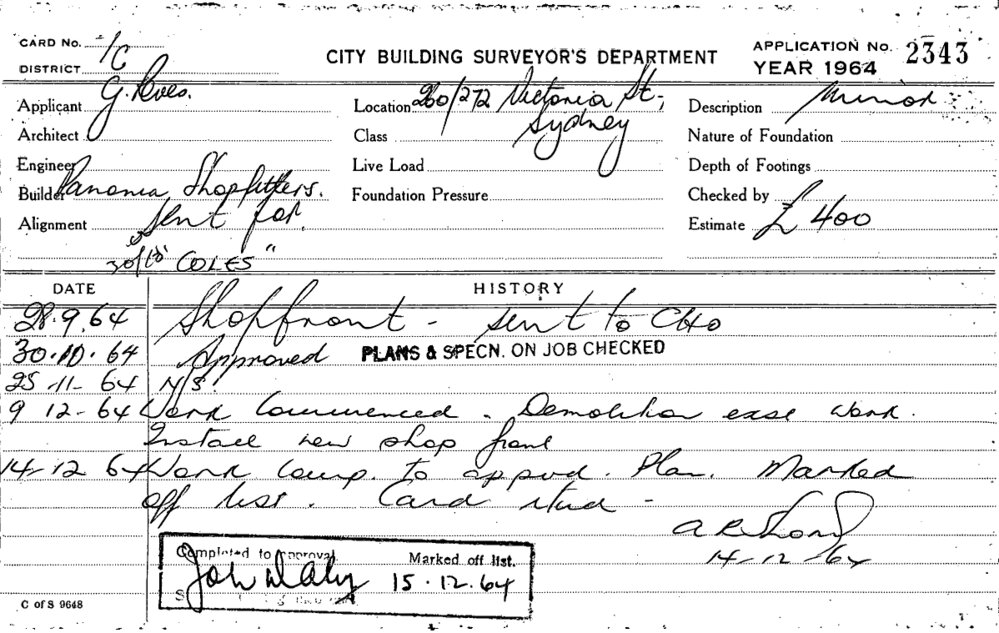 CARD No. 1C
DISTRICT
CITY BUILDING SURVEYOR'S DEPARTMENT
APPLICATION No. 2343
YEAR 1964
Applicant G.
Location 260/272 Victoria St.,
Sydney
Description Minor
Architect
Class
Nature of Foundation
Engineer
Live Load
Depth of Footings
Builder Panonia Shopfitters.
Foundation Pressure
Checked by
Alignment Sent for
Estimate £ 400
30/10 "COLES"
DATE HISTORY
28.9.64 Shopfront - sent to CHO
30.10.64 Approved PLANS & SPECN. ON JOB CHECKED
25-11-64 N/S.
9 12-64 Work Commenced. Demolition work.
Install new shop front
14-12 64 Work comp. to appvd. Plan. Marked
off list. Card rtud -
14-12-64
Completed to approval. Marked off list.
15.12.64
C of S 9648